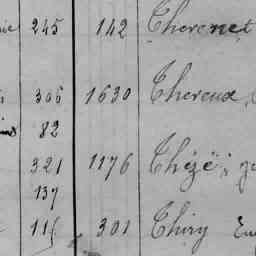 245 142 Thevenet
306 1630 Thereux
82
321 1176 Thézé
137
115 301 Thiry